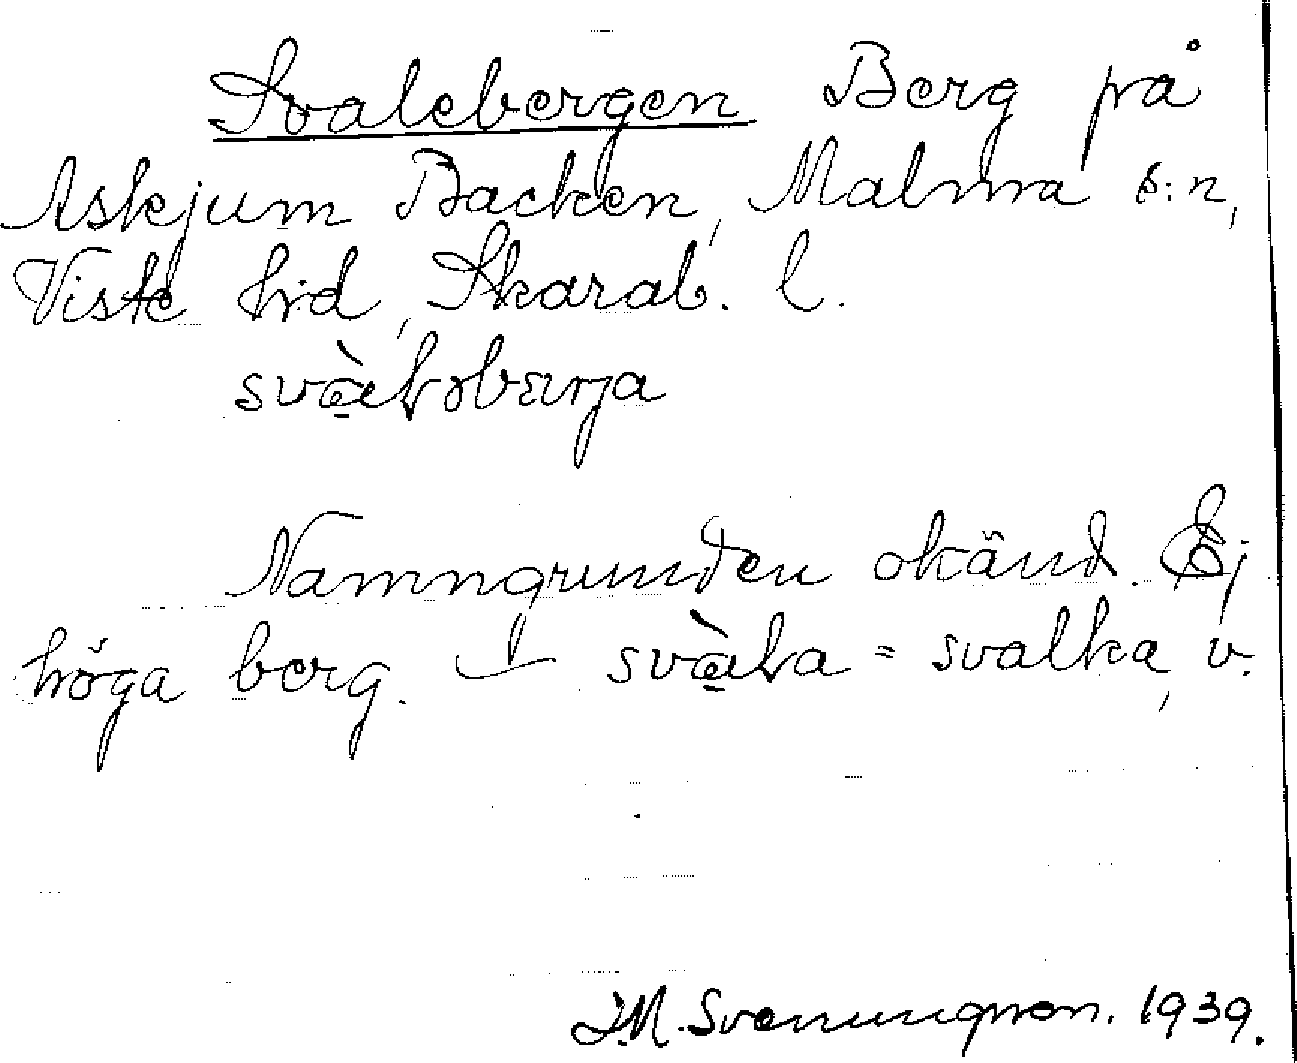 Svalebergen Berg på
Askjum Backen, Malma s:n,
Viste hrd, Skarab. l.
svàḷəbærja
Namngrunden okänd. Ej
höga berg. — svàḷa = svalka, v.
I.M. Svenungsson. 1939.